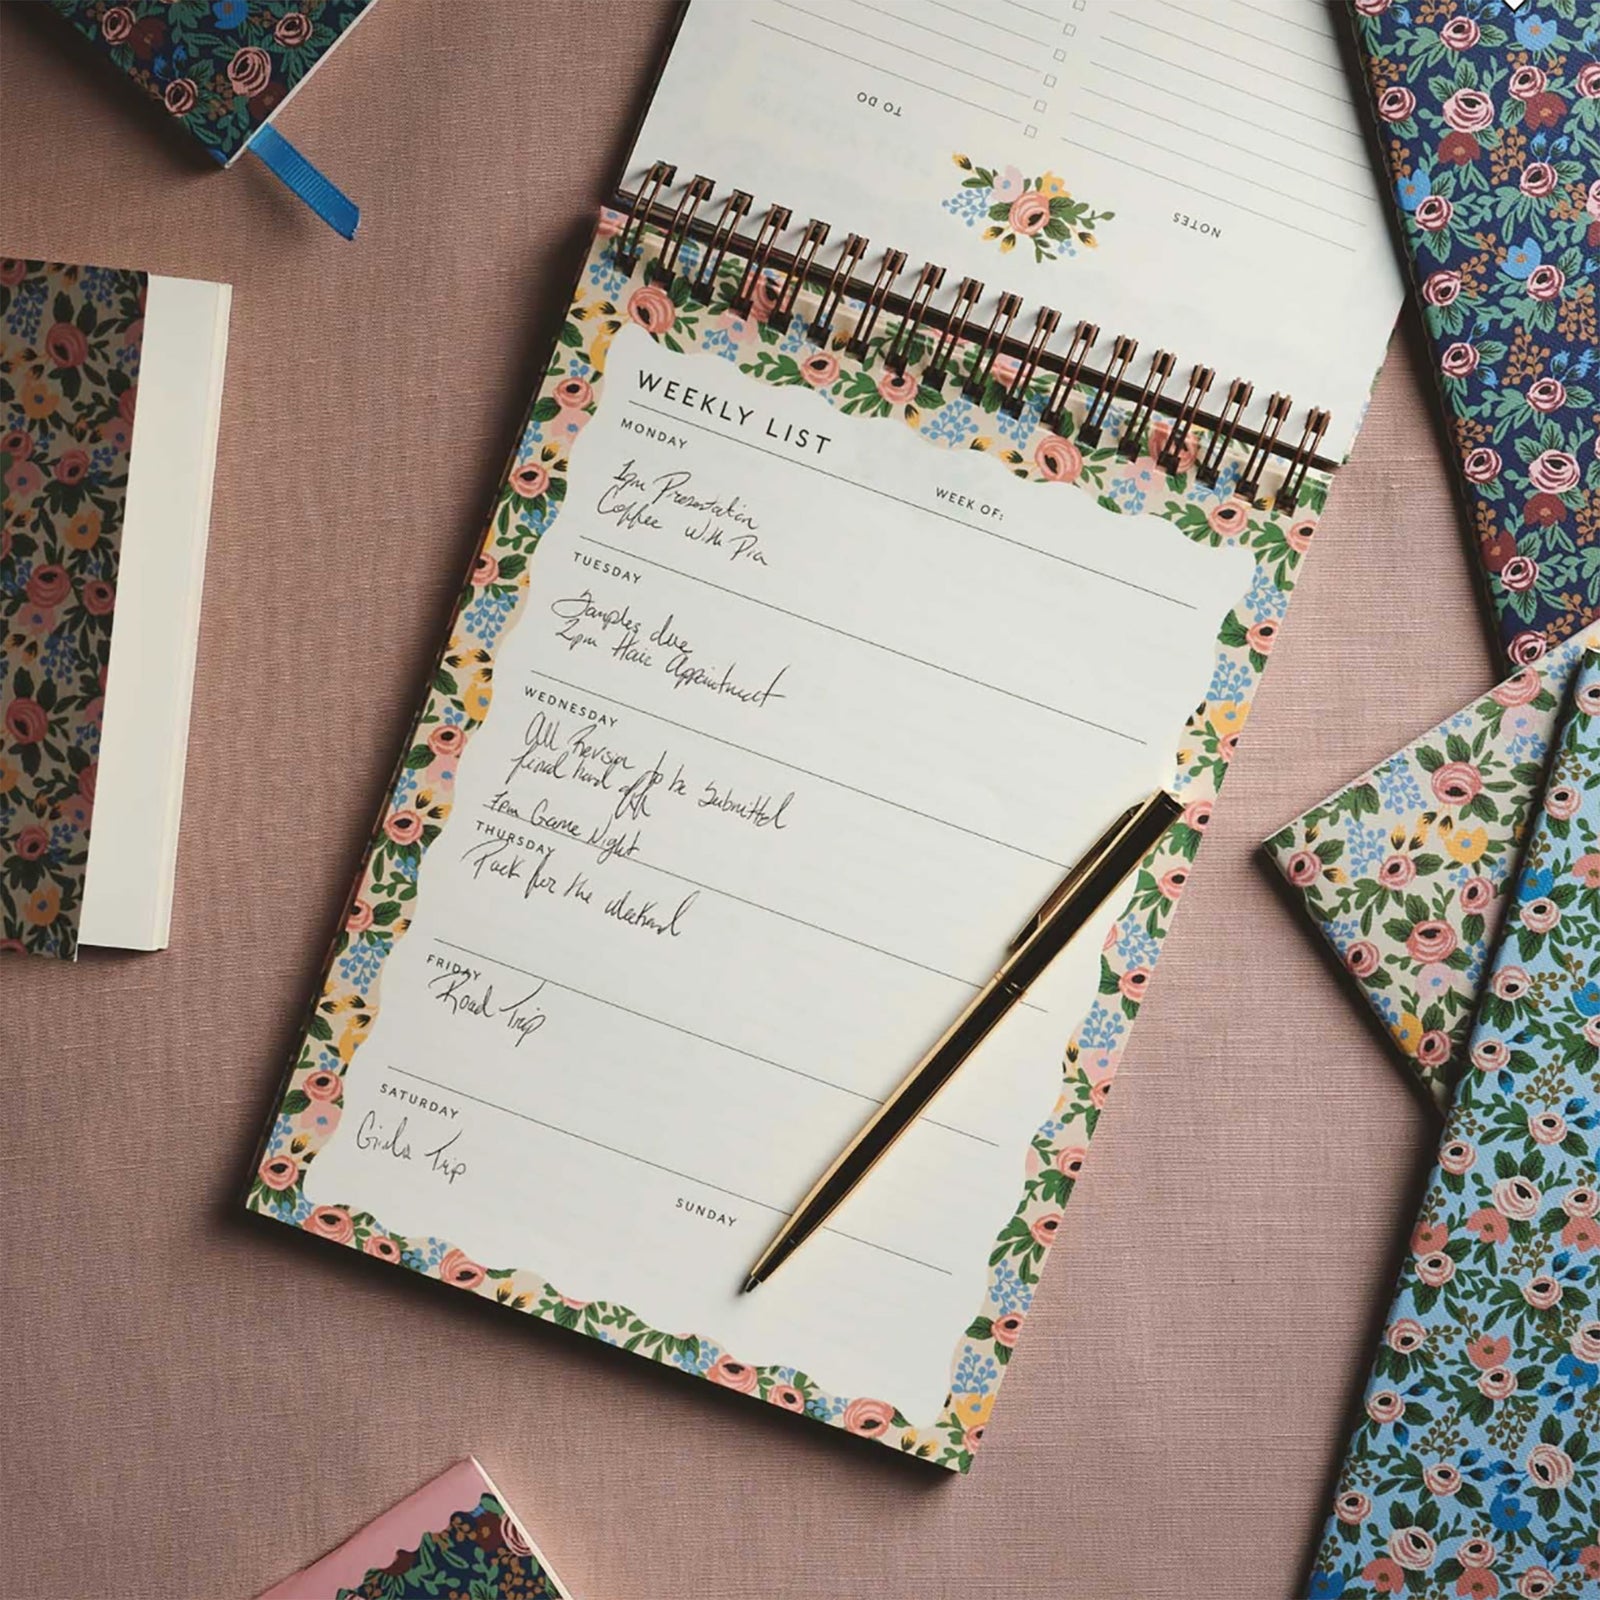 TO DO
NOTES
WEEKLY LIST
WEEK OF:
MONDAY
1pm Presentation
Coffee with Pia
TUESDAY
Samples due
2pm Hair Appointment
WEDNESDAY
All Revision to be Submitted
final hand off
7pm Game Night
THURSDAY
Pack for the weekend
FRIDAY
Road Trip
SATURDAY
Girls Trip
SUNDAY